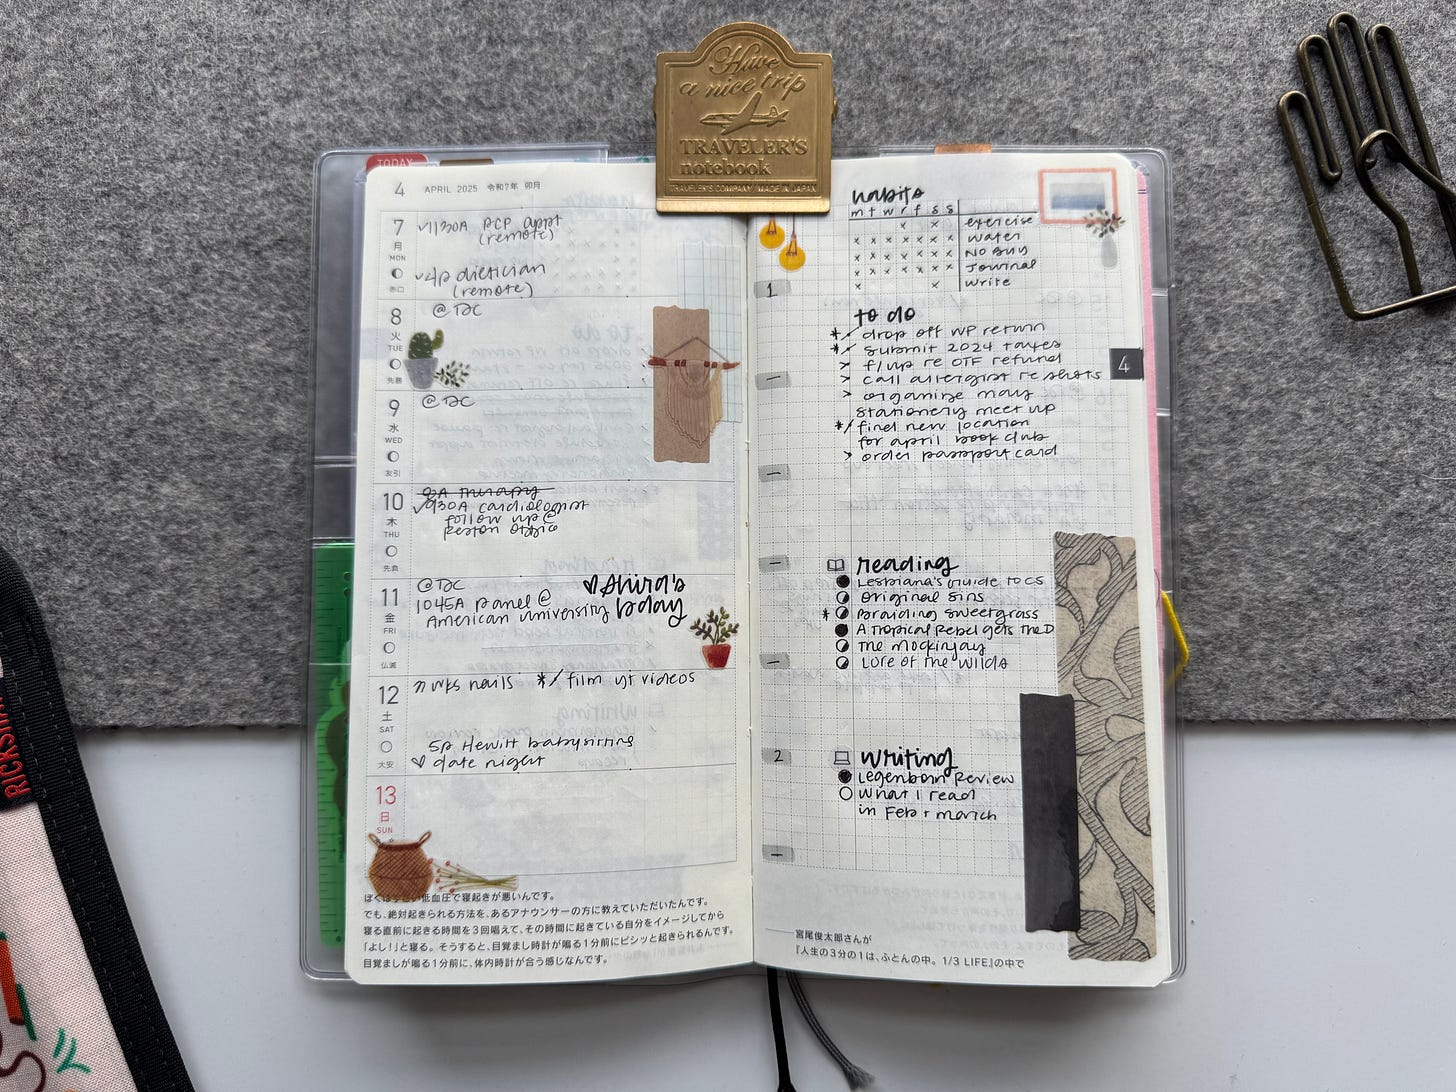 Have
a nice trip
TRAVELER'S
notebook
TRAVELER'S COMPANY MADE IN JAPAN
TODAY
4 APRIL 2025 令和7年 卯月
7 月 MON 赤口
√1130A PCP appt
(remote)
√4p dietician
(remote)
8 火 TUE 先勝
@ TJC
9 水 WED 友引
@ TJC
10 木 THU 先負
8A therapy
√930A cardiologist
follow up @
Reston office
11 金 FRI 仏滅
@ TJC
1045A panel @
American University
♡ Shira's
bday
12 土 SAT 大安
nails * / film yt videos
5p Hewitt babysitting
♡ date night
13 日 SUN
低血圧で寝起きが悪いんです。
でも、絶対起きられる方法を、あるアナウンサーの方に教えていただいたんです。
寝る直前に起きる時間を3回唱えて、その時間に起きている自分をイメージしてから
「よし!」と寝る。そうすると、目覚まし時計が鳴る1分前にビシッと起きられるんです。
目覚ましが鳴る1分前に、体内時計が合う感じなんです。
habits
m t w r f s s
x x exercise
x x x x x x x water
x x x x x x x No Buy
x x x x x x x Journal
x x write
1
to do
* / drop off WP return
* / submit 2024 taxes
> f/up re OTF refund
> call allergist re shots
> organize may
stationery meet up
* / find new location
for april book club
> order passport card
4
reading
Lesbiana's Guide to CS
Original Sins
* Braiding Sweetgrass
A Tropical Rebel Gets The D
The Mockinjay
Lore of the Wilds
2
writing
Legenborn Review
What I read
in Feb + march
宮尾俊太郎さんが
『人生の3分の1は、ふとんの中。1/3 LIFE』の中で